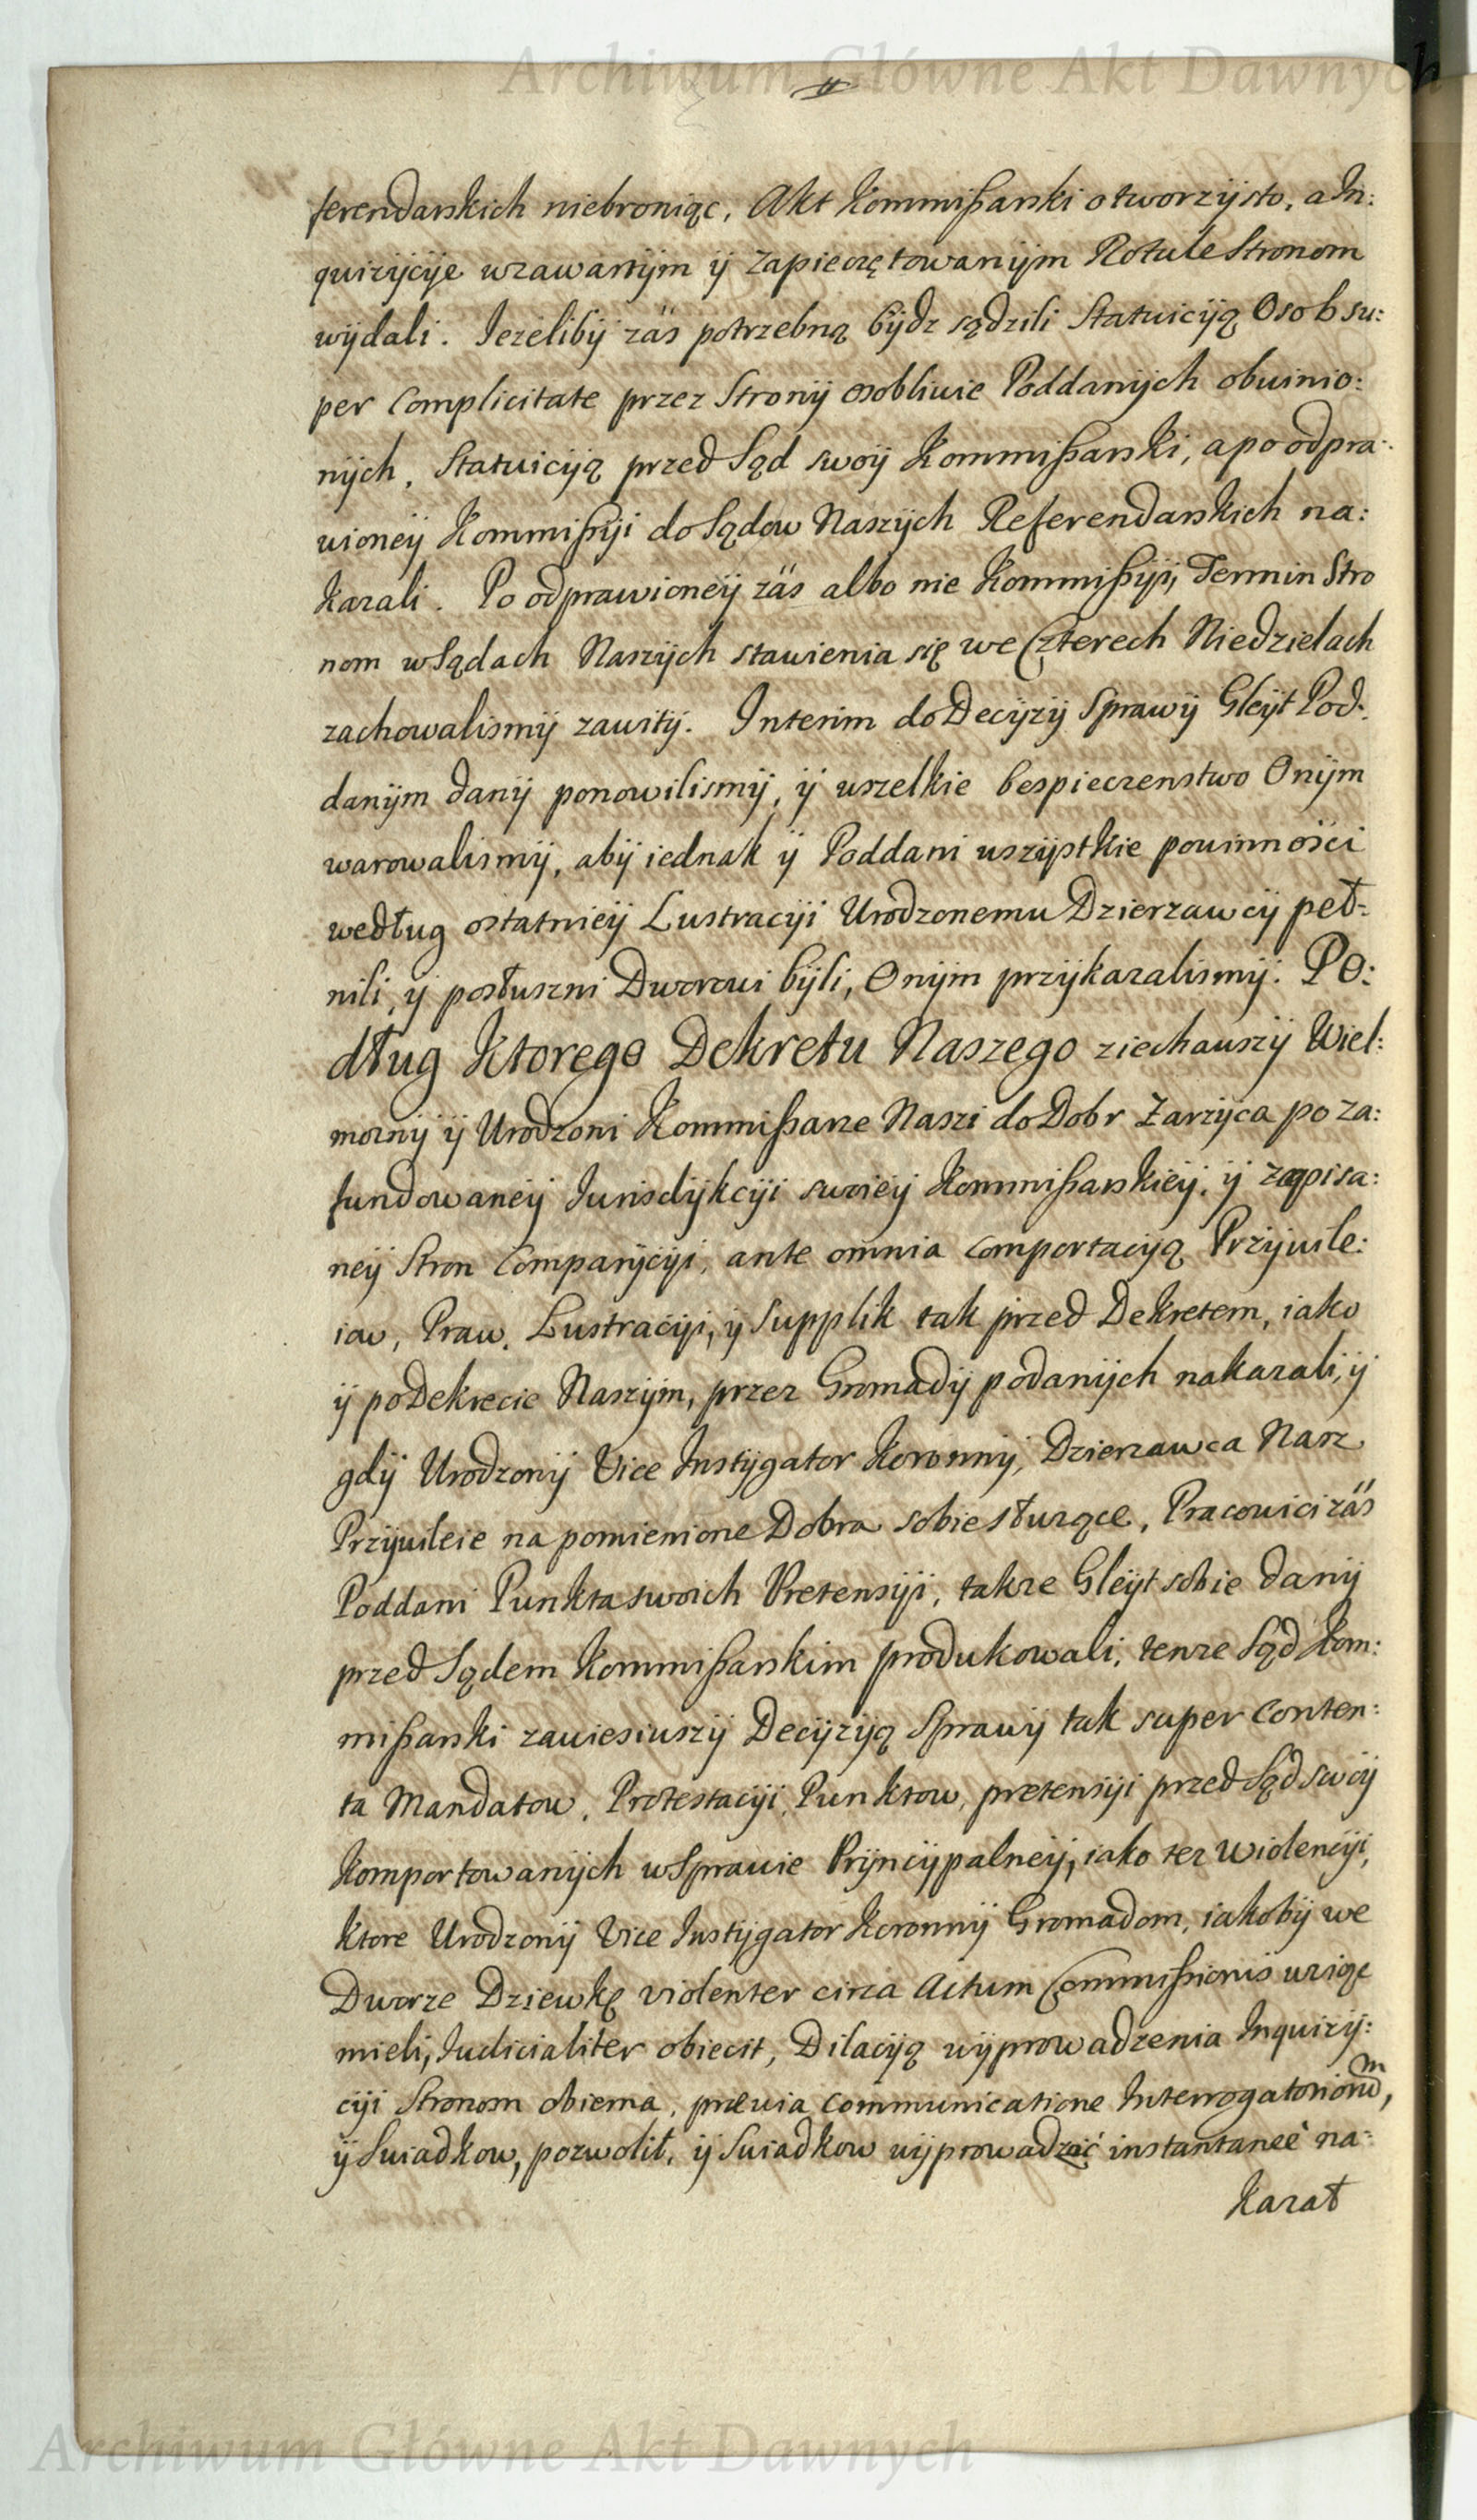 Archiwum Główne Akt Dawnych
ferendarskich niebroniąc, Akt Kommißarski otworzysto, a In:
quizycije wzawartÿm ÿ zapieczętowanÿm Rotule Stronom
wÿdali. Jeżelibÿ zás potrzebną bÿdz sądzili Statuicÿą Osob su:
per complicitate przez Stronÿ osobliwie Poddanÿch obwinio:
nÿch, Statuicÿą przed Sąd swoÿ Kommißarski, a po odpra:
wioneÿ Kommißÿi do Sądow Naszÿch Referendarskich na:
kazali. Po odprawioneÿ zás albo nie Kommißÿi, Termin Stro
nom w Sądach Naszÿch stawienia się we Czterech Niedzielach
zachowalismÿ zawitÿ. Interim do Decÿzÿ Sprawÿ Gleÿt Pod:
danÿm danÿ ponowilismÿ, ÿ wszelkie bespieczenstwo Onÿm
warowalismÿ, abÿ iednak ÿ Poddani wszÿstkie powinnosci
według ostatnieÿ Lustracÿi Urodzonemu Dzierzawcÿ peł:
nili, ÿ posłuszni Dworowi bÿli, Onÿm przÿkazalismÿ. PO:
dług Ktorego Dekretu Naszego ziechawszÿ Wiel:
moznÿ ÿ Urodzoni Kommißarze Naszi do Dobr Zarzÿca po za:
fundowaneÿ Jurisdÿkcÿi swoieÿ Kommißarskieÿ, ÿ zapisa:
neÿ Stron Comparÿcÿi, ante omnia comportacÿą Przÿwile:
iow, Praw, Lustracÿi, ÿ Supplik tak przed Dekretem, iako
ÿ po Dekrecie Naszÿm, przez Gromadÿ podanÿch nakazali, ÿ
gdÿ Urodzonÿ Vice Instÿgator Koronnÿ, Dzierzawca Nasz
Przÿwileie na pomienione Dobra sobie słuzące, Pracowici zás
Poddani Punkta swoich Pretensÿi, takze Gleÿt sobie danÿ
przed Sądem Kommißarskim produkowali, tenze Sąd Kom:
mißarski zawiesiwszÿ Decÿzÿą Sprawÿ tak super conten:
ta Mandatow, Protestacÿi, Punktow, pretensÿi przed Sąd swoÿ
Komportowanÿch w Sprawie Prÿncÿpalneÿ, iako tez Wiolencÿi,
Ktore Urodzonÿ Vice Instÿgator Koronnÿ Gromadom, iakobÿ we
Dworze Dziewkę violenter circa Actum Commißionis wziąc
mieli, Judicialiter obiecit, Dilacÿą wÿprowadzenia Inquizÿ:
cÿi Stronom obiema, prævia communicatione Interrogatoriorum,
ÿ Swiadkow, pozwolił, ÿ Swiadkow wÿprowadzić instantaneè na:
Kazał
Archiwum Główne Akt Dawnych